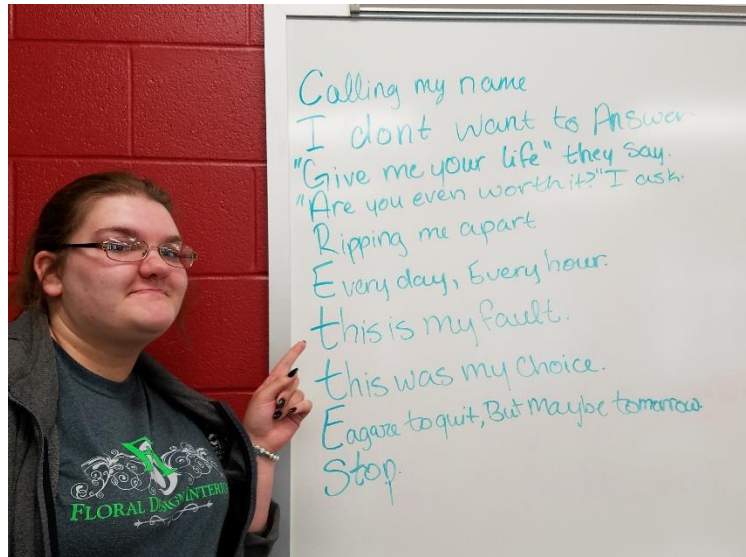 Calling my name
I dont want to Answer.
"Give me your life" they say.
"Are you even worth it?" I ask.
Ripping me apart
Every day, Every hour.
this is my fault.
this was my choice.
Eagare to quit, But Maybe tomorrow
Stop.
FLORAL